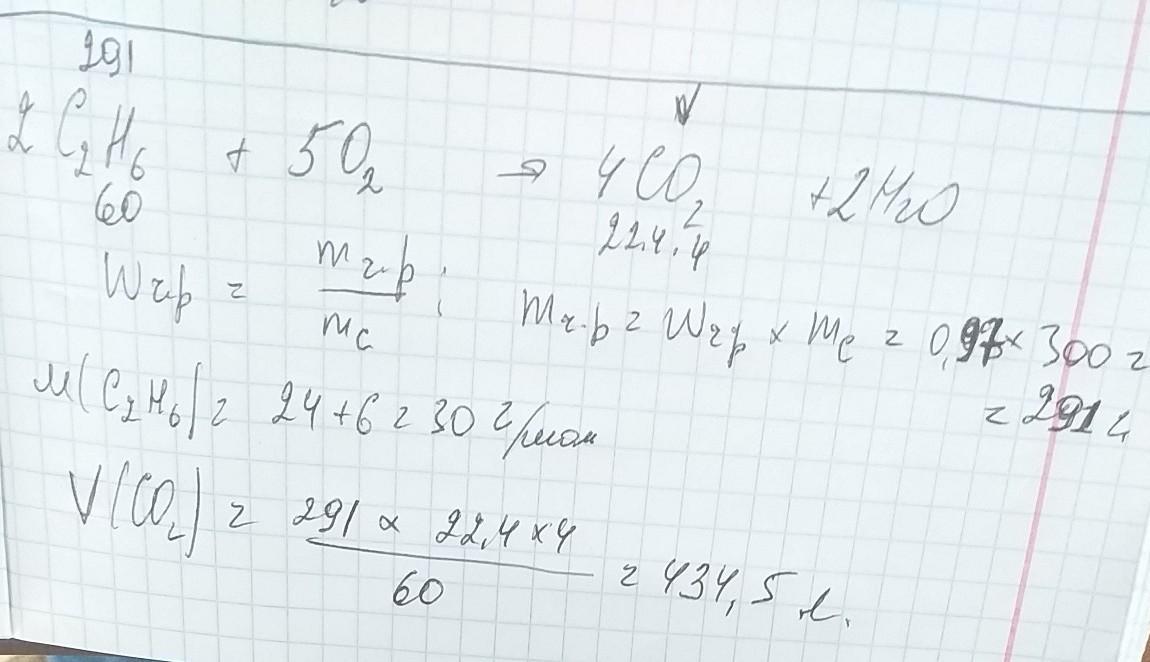 291
2C₂H₆ + 5O₂ → 4CO₂ + 2H₂O
60 22,4 · 4
Wг.р = mг.р / mc ; mг.р = Wгр × mc = 0,97 × 300 =
= 291 г
M(C₂H₆) = 24 + 6 = 30 г/моль
V(CO₂) = 291 × 22,4 × 4 / 60 = 434,5 л.